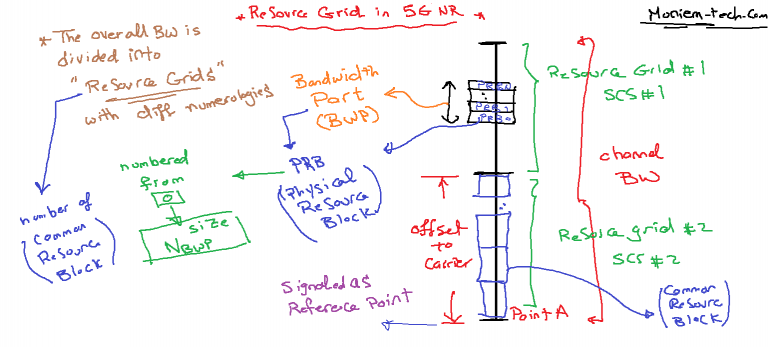 * ReSource Grid in 5G NR *
Moniem-tech.com
* The overall BW is
divided into
"ReSource Grids"
with diff numerologies
number of
Common
ReSource
Block
numbered
from
0
size
NBWP
Bandwidth
Part
(BWP)
PRB
Physical
ReSource
Block
Signaled as
Reference Point
PRB
PRB1
PRB0
offset
to
Carrier
Point A
ReSource Grid #1
SCS#1
channel
BW
ReSource grid #2
SCS #2
Common
ReSource
Block